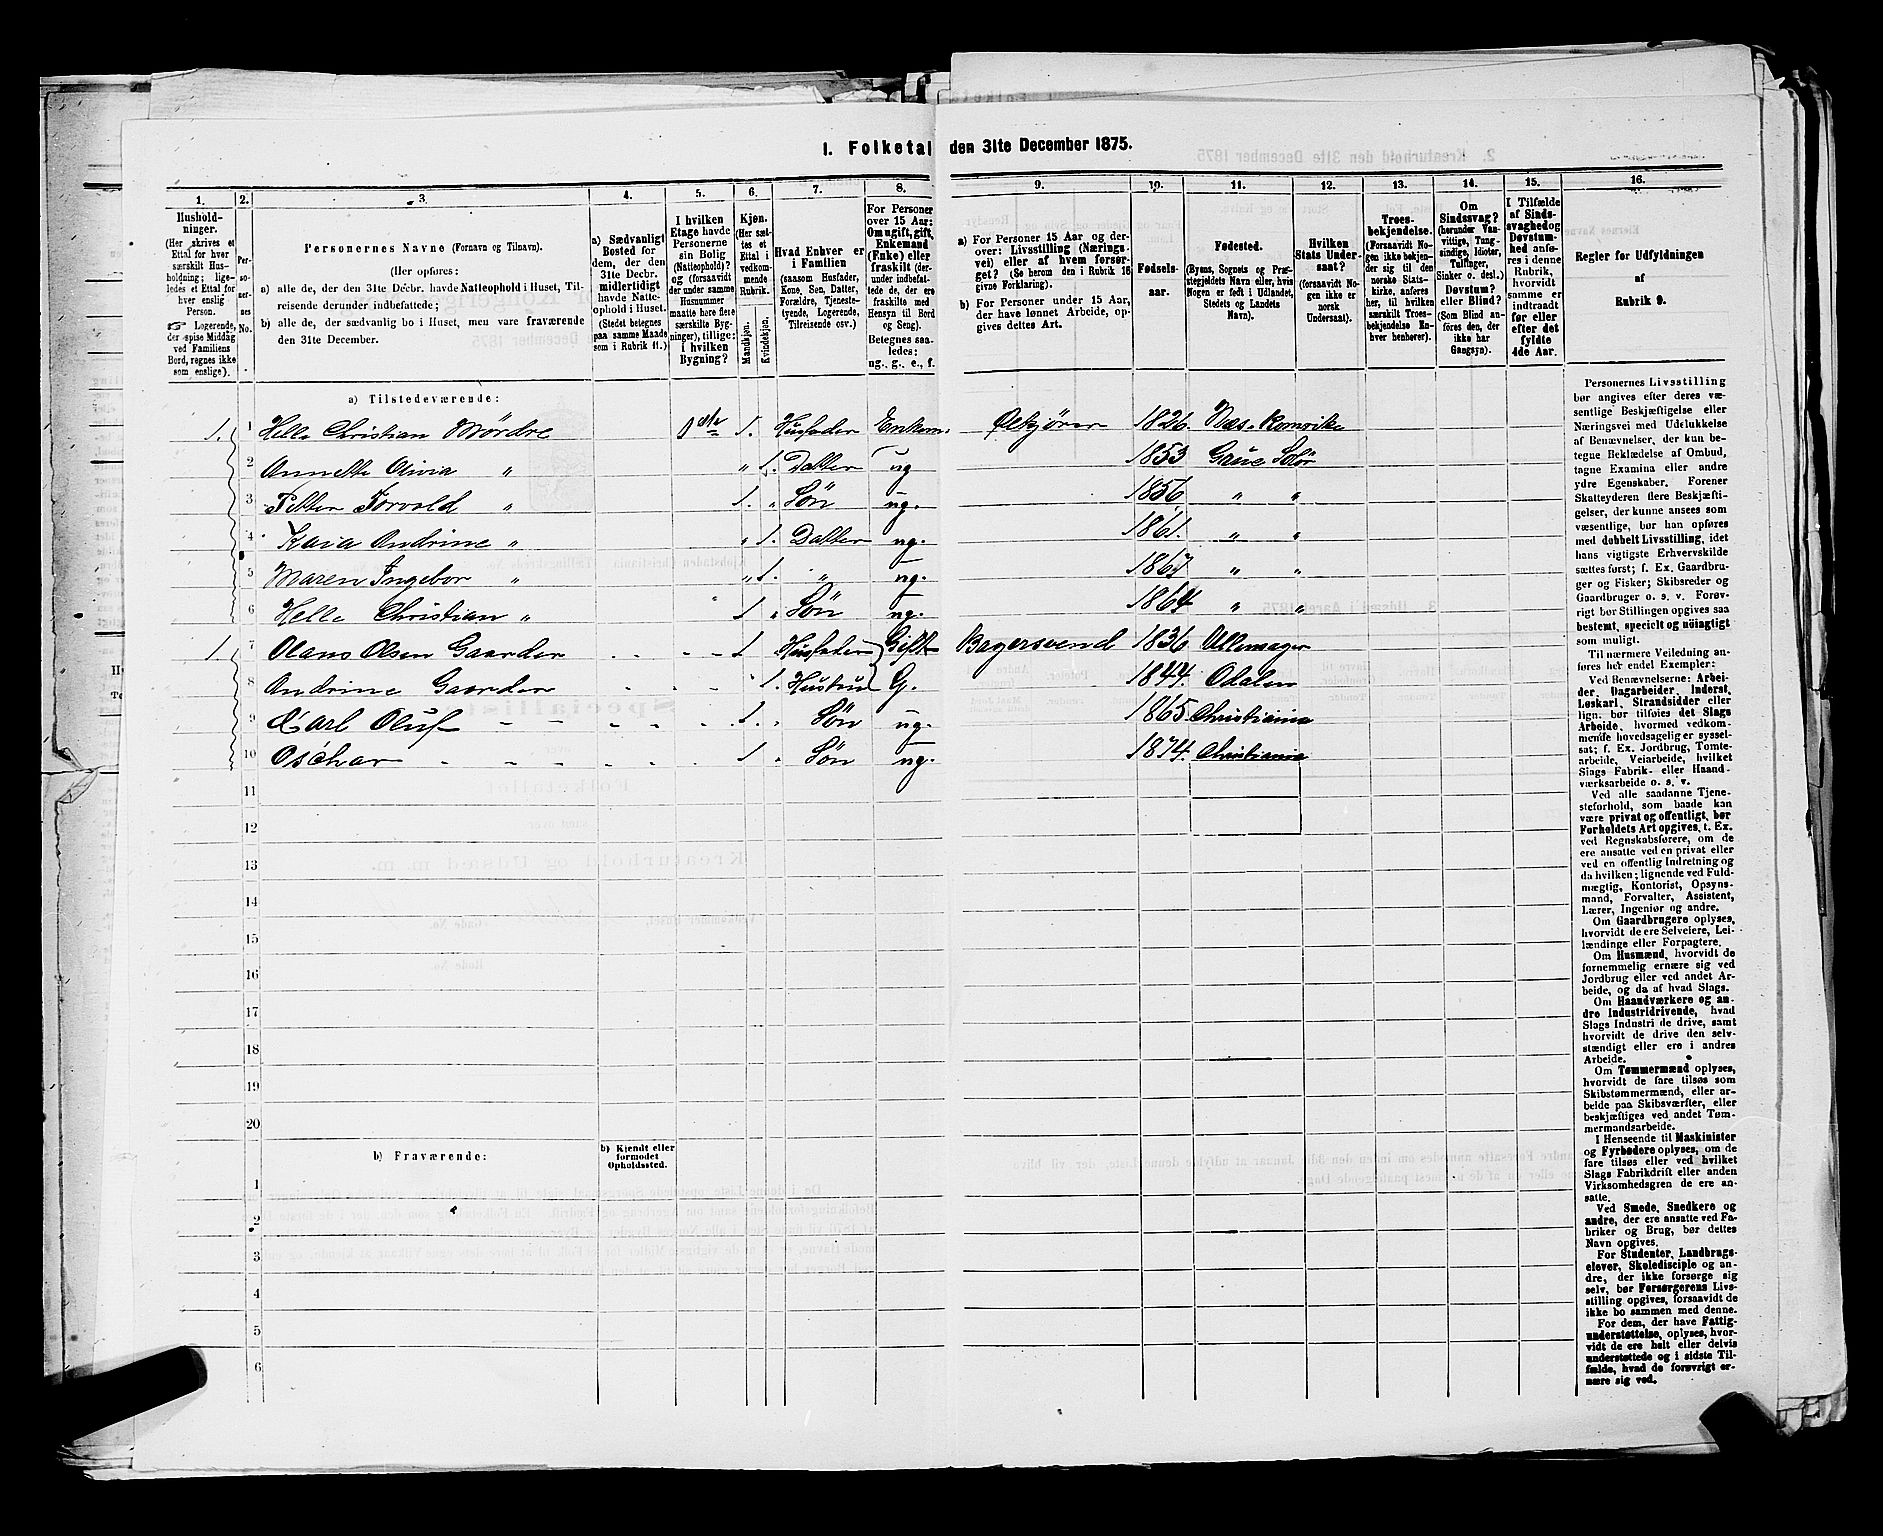 1. Folketal den 31te December 1875.
1. 2. 3. 4. 5. 6. 7. 8. 9. 10. 11. 12. 13. 14. 15. 16.
Husholdninger.
(Her skrives et
Ettal for hver
særskilt Husholdning;
ligeledes et Ettal for
hver enslig
Person.
☞ Logerende,
der spise Middag
ved Familiens
Bord, regnes ikke
som enslige).
Personernes No.
Personernes Navne (Fornavn og Tilnavn).
(Her opføres:
a) alle de, der den 31te Decbr. havde Natteophold i Huset, Tilreisende derunder indbefattede;
b) alle de, der sædvanlig bo i Huset, men vare fraværende
den 31te December.
a) Sædvanligt
Bosted for
dem, der den
31te Decbr.
midlertidigt
havde Natteophold i Huset.
(Stedet betegnes
paa samme Maade
som i Rubrik 11.)
I hvilken
Etage havde
Personerne
sin Bolig
(Natteophold)?
(forsaavidt
der under samme
Husnummer
maatte høre flere
særskilte Bygninger), tillige:
i hvilken
Bygning?
Kjøn.
(Her sættes et
Ettal i
vedkommende
Rubrik.)
Mandkjøn.
Kvindekjøn.
Hvad Enhver er
i Familien
(saasom Husfader,
Kone, Søn, Datter,
Forældre, Tjenestetyende, Logerende,
Tilreisende osv.)
For Personer
over 15 Aar:
Om ugift, gift,
Enkemand
(Enke) eller
fraskilt (derunder indbefattede de, der ere
fraskilte med
Hensyn til Bord
og Seng).
Betegnes saaledes:
ug., g., e., f.
a) For Personer 15 Aar og derover: Livsstilling (Næringsvei) eller af hvem forsørget? (Se herom den i Rubrik 16
givne Forklaring).
b) For Personer under 15 Aar,
der have lønnet Arbeide, opgives dettes Art.
Fødselsaar.
Fødested.
(Byens, Sognets og Præstegjeldets Navn eller, hvis
Nogen er født i Udlandet,
Stedets og Landets
Navn).
Hvilken
Stats Undersaat?
(forsaavidt Nogen ikke er
norsk
Undersaat).
Troesbekjendelse.
(Forsaavidt Nogen ikke bekjender sig til den
norske Statskirke, anføres
her, til hvilken
særskilt Troesbekjendelse Enhver henhører).
Om
Sindssvag?
(herunder Vanvittige, Tungsindige, Idioter,
Tullinger,
Sinker o. desl.).
Døvstum?
eller Blind?
(Som Blind anføres den, der
ikke har
Gangsyn).
I Tilfælde
af Sindssvaghed og
Døvstumhed anføres i denne
Rubrik,
hvorvidt
samme er
indtraadt
før eller
efter det
fyldte
4de Aar.
Regler for Udfyldningen
af
Rubrik 9.
a) Tilstedeværende:
1. 1 Helle Christian Mördre 1ste 1. Husfader Enkem. Ølkjörer 1826. Næs. Romerike
2 Annette Olivia " " 1. Datter ug 1853 Grue Solör
3 Petter Torvald " 1. " Sön ug. 1856 " "
4 Kaia Andrine " " 1. Datter ug. 1861. " "
5 Maren Ingebor " " 1. " ug. 1867 " "
6 Helle Christian " 1 " Sön ug. 1864 " "
1. 7 Olaus Olsen Gaarder 1 Husfader Gift Bagersvend 1836 Ullensager
8 Andrine Gaarder " 1. Hustru G. 1844. Odalen
9 Carl Oluf 1. " Sön ug. 1865. Christiania
10 Oschar 1 " Sön ug. 1874. Christiania
11
12
13
14
15
16
17
18
19
20
b) Fraværende:
b) Kjendt eller
formodet
Opholdssted.
1
2
3
4
5
6
Personernes Livsstilling
bør angives efter deres væsentlige Beskjæftigelse eller
Næringsvei med Udelukkelse
af Benævnelser, der kun betegne Beklædelse af Ombud,
tagne Examina eller andre
ydre Egenskaber. Forener
Skatteyderen flere Beskjæftigelser, der kunne ansees som
væsentlige, bør han opføres
med dobbelt Livsstilling, idet
hans vigtigste Erhvervskilde
sættes først; f. Ex. Gaardbruger og Fisker; Skibsreder og
Gaardbruger o. s. v. Forøvrigt bør Stillingen opgives saa
bestemt, specielt og nöiagtigt
som muligt.
Til nærmere Veiledning anføres her endel Exempler:
Ved Benævnelserne: Arbeider, Dagarbeider, Inderst,
Løskarl, Strandsidder eller
lign. bør tilføies det Slags
Arbeide, hvormed vedkommende hovedsagelig er sysselsat; f. Ex. Jordbrug, Tomtearbeide, Veiarbeide, hvilket
Slags Fabrik- eller Haandværksarbeide o. s. v.
Ved alle saadanne Tjenesteforhold, som baade kan
være privat og offentligt, bør
Forholdets Art opgives, t. Ex.
ved Regnskabsførere, om de
ere ansatte ved en privat eller
ved en offentlig Indretning og
da hvilken; lignende ved Fuldmægtig, Kontorist, Opsynsmand, Forvalter, Assistent,
Lærer, Ingeniør og andre.
Om Gaardbrugere oplyses,
hvorvidt de ere Selveiere, Leilændinge eller Forpagtere.
Om Husmænd, hvorvidt de
fornemmelig ernære sig ved
Jordbrug eller ved andet Arbeide, og da af hvad Slags.
Om Haandværkere og andre Industridrivende, hvad
Slags Industri de drive, samt
hvorvidt de drive den selvstændigt eller ere i andres
Arbeide.
Om Tømmermænd oplyses,
hvorvidt de fare tilsøs som
Skibstømmermænd, eller arbeide paa Skibsværfter, eller
beskjæftiges ved andet Tømmermandsarbeide.
I Henseende til Maskinister
og Fyrbødere oplyses, om de
fare tilsøs eller ved hvilket
Slags Fabrikdrift eller anden
Virksomhedsgren de ere ansatte.
Ved Smede, Snedkere og
andre, der ere ansatte ved Fabriker og Brug, bør dettes
Navn opgives.
For Studenter, Landbrugselever, Skoledisciple og andre, der ikke forsørge sig
selv, bør Forsørgerens Livsstilling opgives, forsaavidt de
ikke bo sammen med denne.
For dem, der have Fattigunderstøttelse, oplyses, hvorvidt de ere helt eller delvis
understøttede og i sidste Tilfælde, hvad de forøvrigt ernære sig ved.